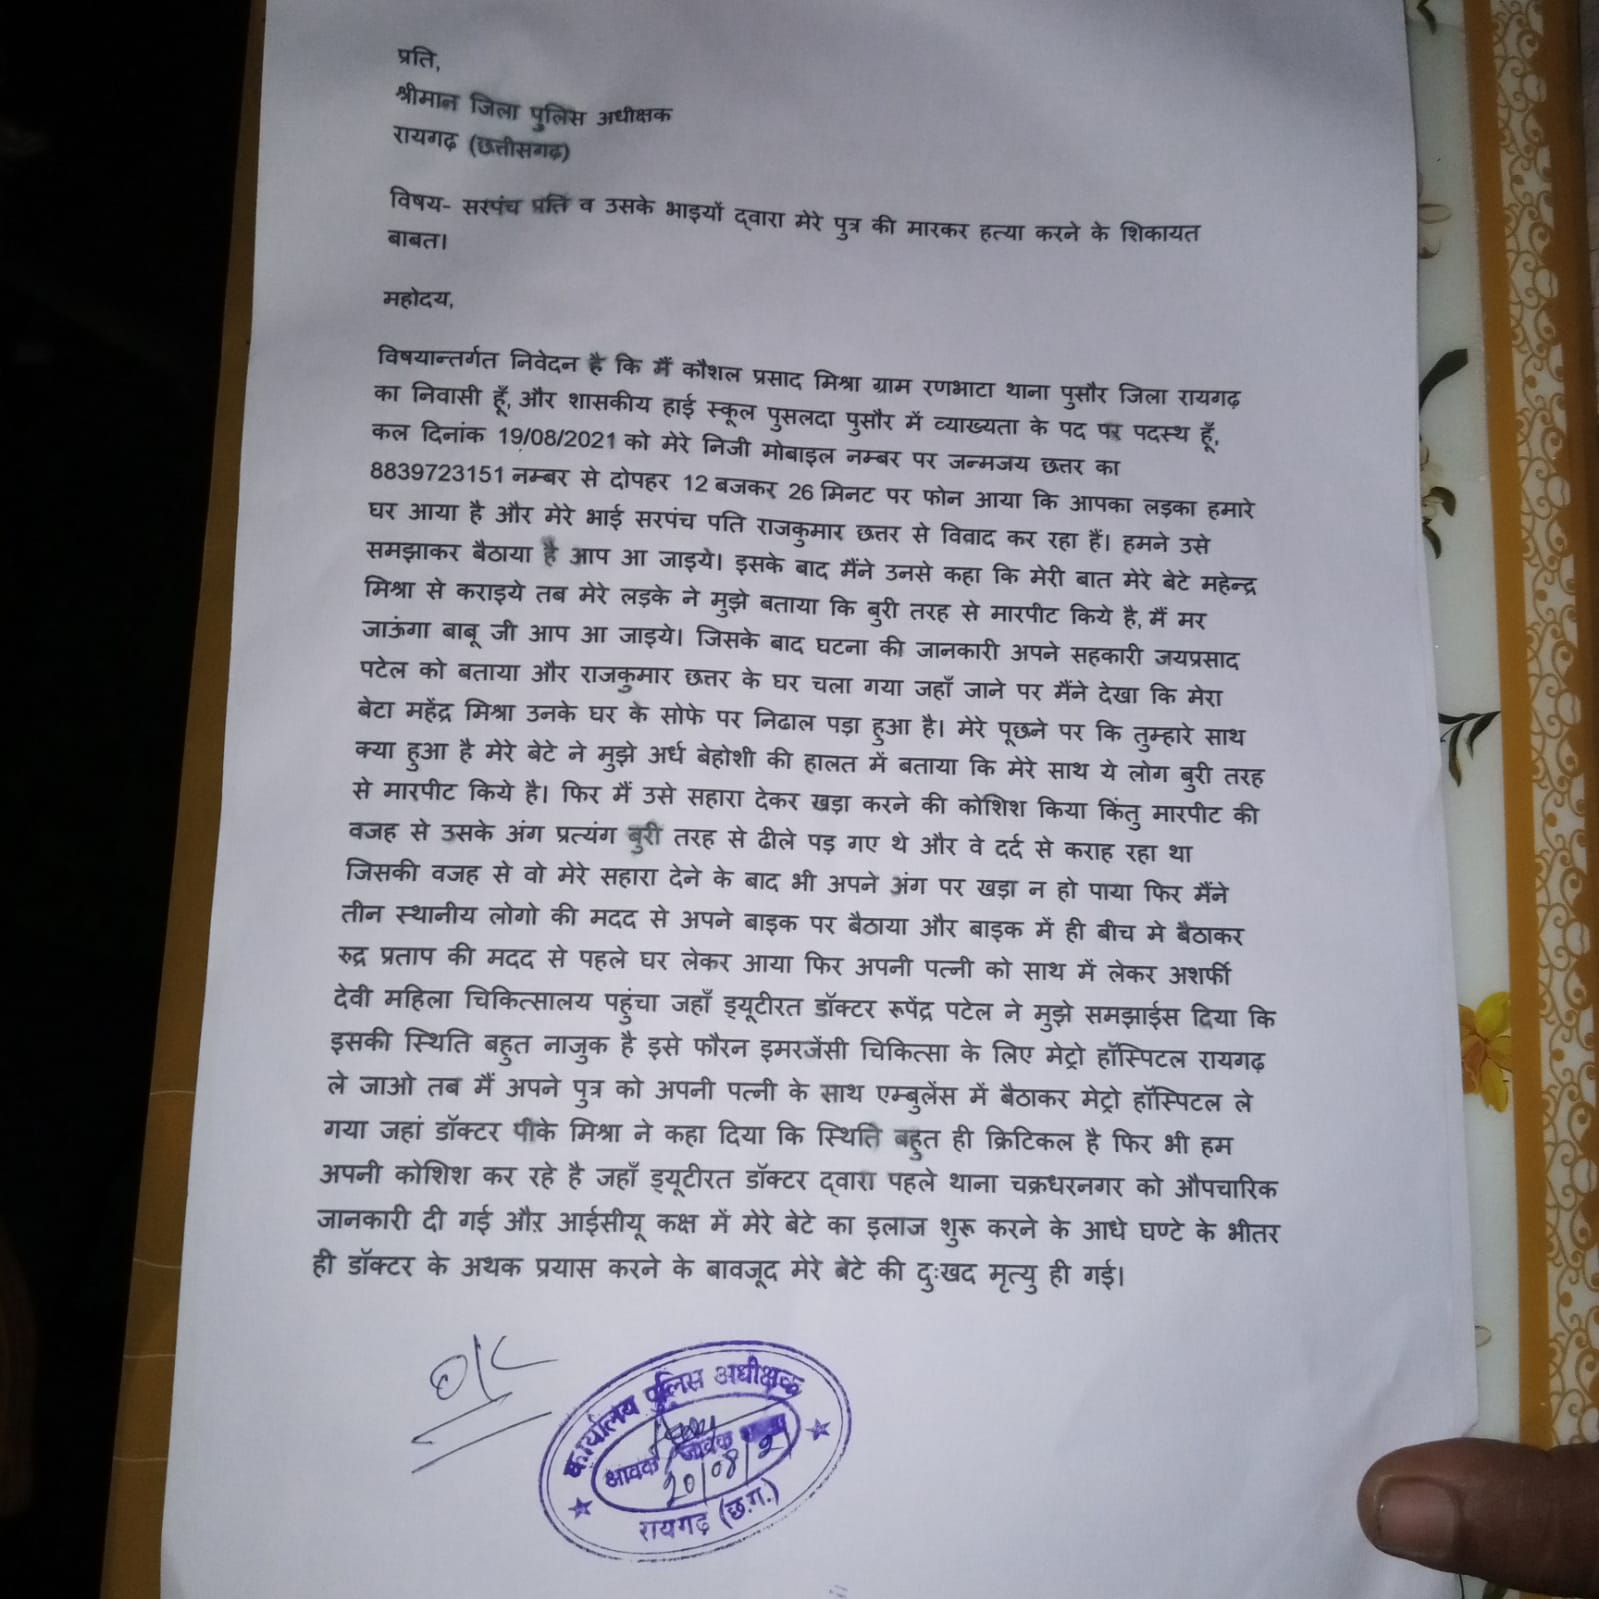 प्रति,
श्रीमान जिला पुलिस अधीक्षक
रायगढ़ (छत्तीसगढ़)
विषय- सरपंच प्रति व उसके भाइयों द्वारा मेरे पुत्र की मारकर हत्या करने के शिकायत
बाबत।
महोदय,
विषयान्तर्गत निवेदन है कि मैं कौशल प्रसाद मिश्रा ग्राम रणभाटा थाना पुसौर जिला रायगढ़
का निवासी हूँ, और शासकीय हाई स्कूल पुसलदा पुसौर में व्याख्यता के पद पर पदस्थ हूँ,
कल दिनांक 19/08/2021 को मेरे निजी मोबाइल नम्बर पर जन्मजय छत्तर का
8839723151 नम्बर से दोपहर 12 बजकर 26 मिनट पर फोन आया कि आपका लड़का हमारे
घर आया है और मेरे भाई सरपंच पति राजकुमार छत्तर से विवाद कर रहा हैं। हमने उसे
समझाकर बैठाया है आप आ जाइये। इसके बाद मैंने उनसे कहा कि मेरी बात मेरे बेटे महेन्द्र
मिश्रा से कराइये तब मेरे लड़के ने मुझे बताया कि बुरी तरह से मारपीट किये है, मैं मर
जाऊंगा बाबू जी आप आ जाइये। जिसके बाद घटना की जानकारी अपने सहकारी जयप्रसाद
पटेल को बताया और राजकुमार छत्तर के घर चला गया जहाँ जाने पर मैंने देखा कि मेरा
बेटा महेंद्र मिश्रा उनके घर के सोफे पर निढाल पड़ा हुआ है। मेरे पूछने पर कि तुम्हारे साथ
क्या हुआ है मेरे बेटे ने मुझे अर्ध बेहोशी की हालत में बताया कि मेरे साथ ये लोग बुरी तरह
से मारपीट किये है। फिर मैं उसे सहारा देकर खड़ा करने की कोशिश किया किंतु मारपीट की
वजह से उसके अंग प्रत्यंग बुरी तरह से ढीले पड़ गए थे और वे दर्द से कराह रहा था
जिसकी वजह से वो मेरे सहारा देने के बाद भी अपने अंग पर खड़ा न हो पाया फिर मैंने
तीन स्थानीय लोगो की मदद से अपने बाइक पर बैठाया और बाइक में ही बीच मे बैठाकर
रुद्र प्रताप की मदद से पहले घर लेकर आया फिर अपनी पत्नी को साथ में लेकर अशर्फी
देवी महिला चिकित्सालय पहुंचा जहाँ ड्यूटीरत डॉक्टर रूपेंद्र पटेल ने मुझे समझाईस दिया कि
इसकी स्थिति बहुत नाजुक है इसे फौरन इमरजेंसी चिकित्सा के लिए मेट्रो हॉस्पिटल रायगढ़
ले जाओ तब मैं अपने पुत्र को अपनी पत्नी के साथ एम्बुलेंस में बैठाकर मेट्रो हॉस्पिटल ले
गया जहां डॉक्टर पीके मिश्रा ने कहा दिया कि स्थिति बहुत ही क्रिटिकल है फिर भी हम
अपनी कोशिश कर रहे है जहाँ ड्यूटीरत डॉक्टर द्वारा पहले थाना चक्रधरनगर को औपचारिक
जानकारी दी गई औऱ आईसीयू कक्ष में मेरे बेटे का इलाज शुरू करने के आधे घण्टे के भीतर
ही डॉक्टर के अथक प्रयास करने के बावजूद मेरे बेटे की दुःखद मृत्यु ही गई।
कार्यालय पुलिस अधीक्षक
आवक जावक
20/08/21
रायगढ़ (छ.ग.)